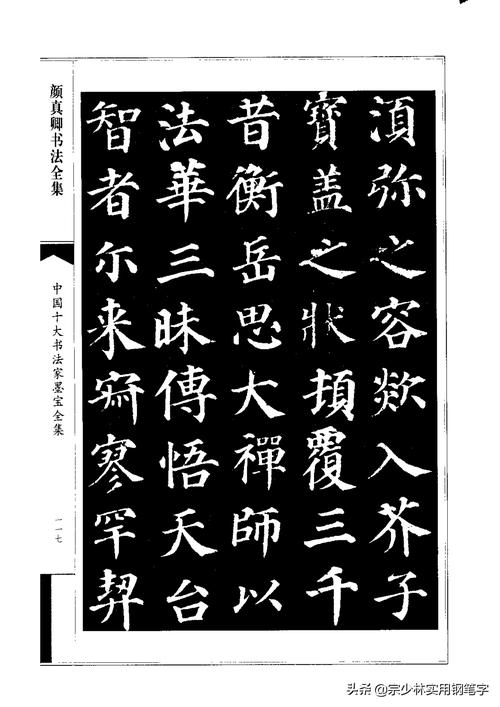 湏弥之容欻入芥子
寶盖之狀頓覆三千
昔衡岳思大禪師以
法華三昧傳悟天台
智者尔来寂寥罕契
颜真卿书法全集
中国十大书法家墨宝全集
一一七
头条 @宗少林实用钢笔字